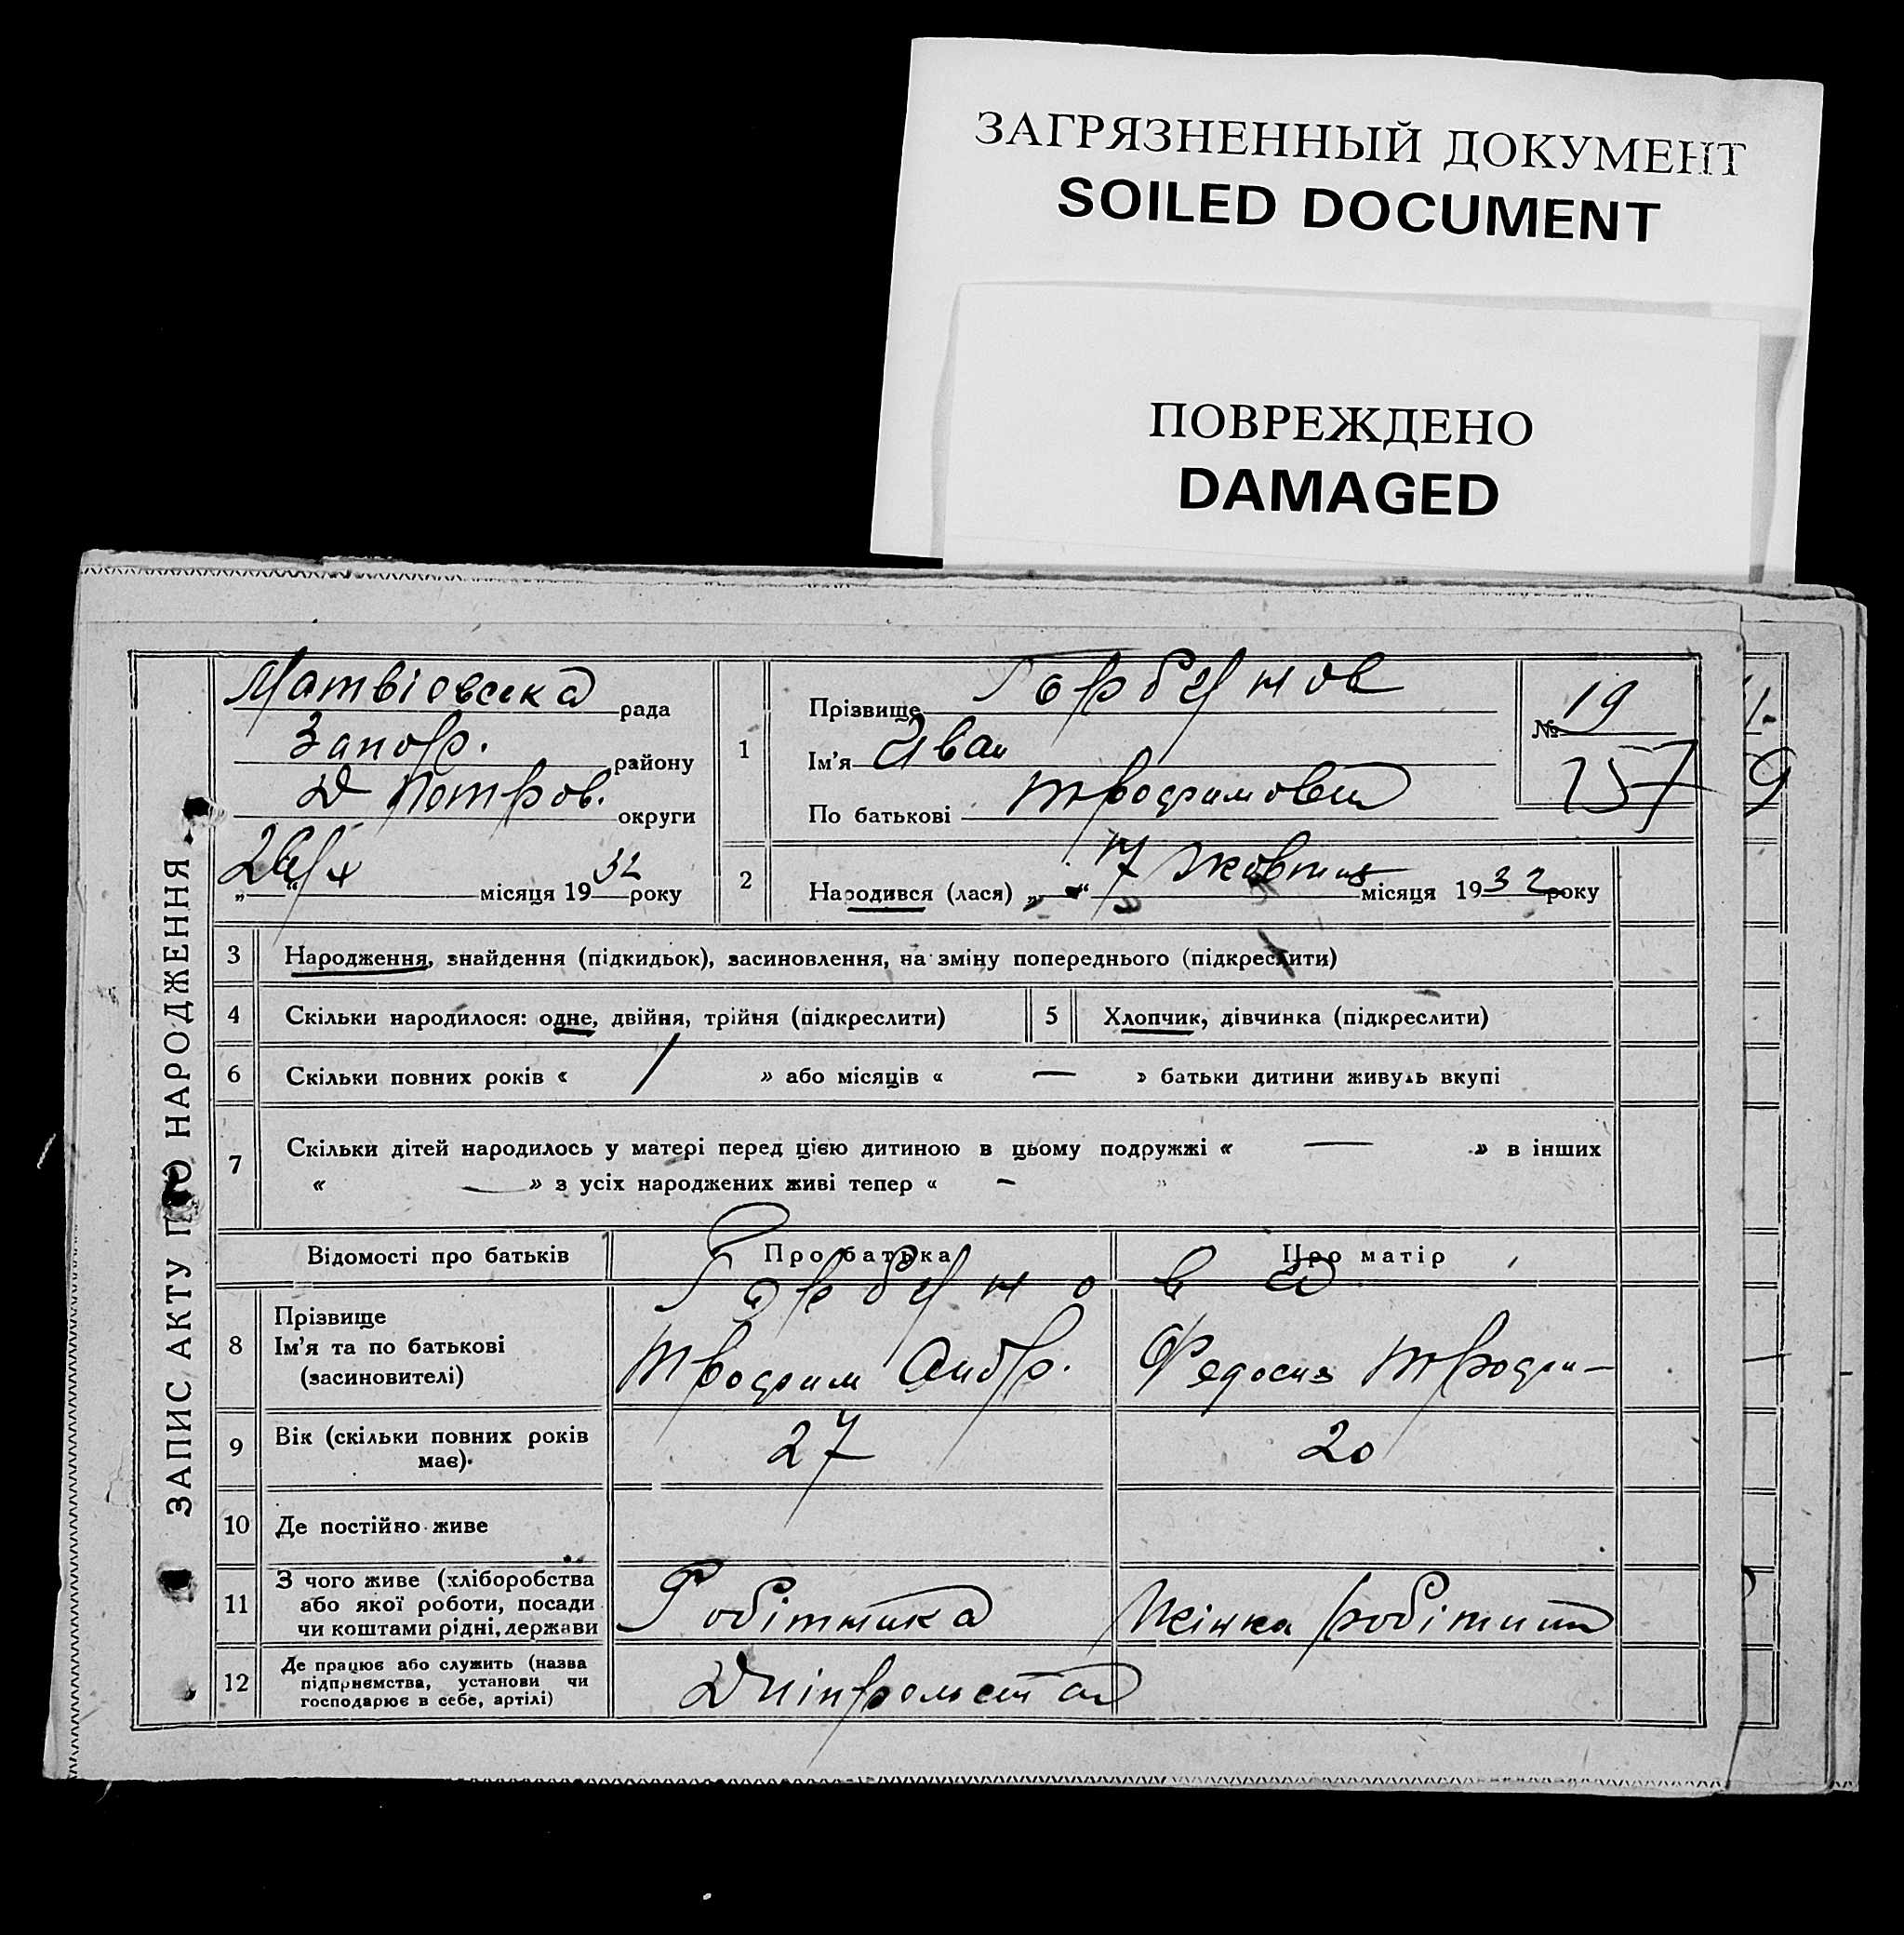 ЗАГРЯЗНЕННЫЙ ДОКУМЕНТ
SOILED DOCUMENT
ПОВРЕЖДЕНО
DAMAGED
ЗАПИС АКТУ ПРО НАРОДЖЕННЯ.
Матвіовська рада
Запор. району
Д Петров. округи
„26“ X місяця 1932 року
1
Прізвище Горбунов
Ім'я Иван
По батькові Трофимович
№ 19
157
2
Народився (лася) „ “ 7 Жовтня місяця 1932 року
3 Народження, знайдення (підкидьок), засиновлення, на зміну попереднього (підкреслити)
4 Скільки народилося: одне, двійня, трійня (підкреслити) 5 Хлопчик, дівчинка (підкреслити)
6 Скільки повних років « 1 » або місяців « — » батьки дитини живуть вкупі
7 Скільки дітей народилось у матері перед цією дитиною в цьому подружжі « — » в інших
« — » з усіх народжених живі тепер « - »
Відомості про батьків Про батька Про матір
Горбунова
8 Прізвище
Ім'я та по батькові
(засиновителі)
Трофим Андр. Федосия Трофи–
9 Вік (скільки повних років
має). 27 20
10 Де постійно живе
11 З чого живе (хліборобства
або якої роботи, посади
чи коштами рідні, держави
Робітника Жінка робітни
12 Де працює або служить (назва
підприємства, установи чи
господарює в себе, артілі)